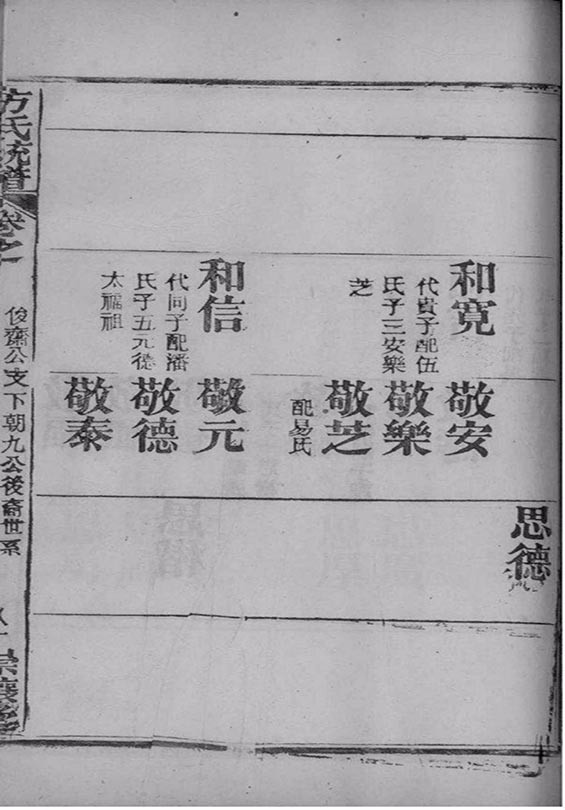 思德
和寬
代貴子配伍
氏子三安樂
芝
敬安
敬樂
敬芝
配易氏
和信
代同子配潘
氏子五元德
太福祖
敬元
敬德
敬泰
方氏統譜
卷之一
俊齋公支下朝九公後裔世系